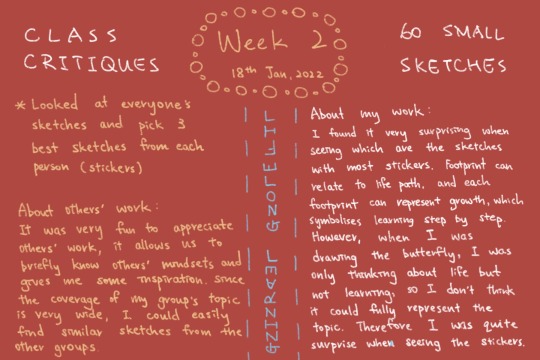 CLASS
CRITIQUES
Week 2
18th Jan, 2022
60 SMALL
SKETCHES
* Looked at everyone's
sketches and pick 3
best sketches from each
person (stickers)
About others' work:
It was very fun to appreciate
others' work, it allows us to
briefly know others' mindsets and
gives me some inspiration. Since
the coverage of my group's topic
is very wide, I could easily
find similar sketches from the
other groups.
LIFELONG LEARNING
About my work:
I found it very surprising when
seeing which are the sketches
with most stickers. Footprint can
relate to life path, and each
footprint can represent growth, which
symbolises learning step by step.
However, when I was
drawing the butterfly, I was
only thinking about life but
not learning, so I don't think
it could fully represent the
topic. Therefore I was quite
surprise when seeing the stickers.